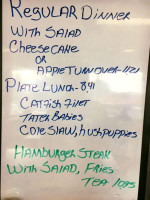 REGULAR DINNER
WITH SALAD
CHEESECAKE
OR
APPLE TURNOVER-1121
PLATE LUNCH-891
CATFISH FILET
TATER BABIES
COLE SLAW, hushpuppies
HAMBURGER STEAK
WITH SALAD, FRIES
TEA 1095